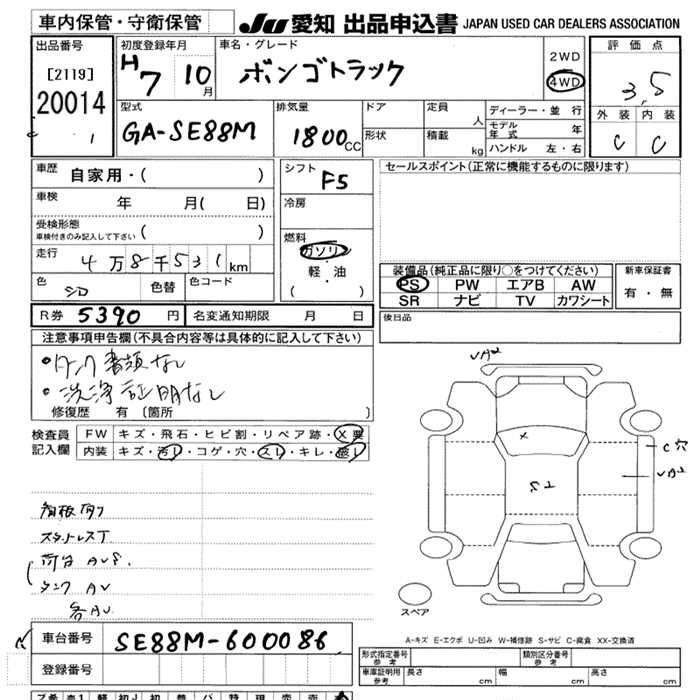 車内保管・守衛保管
JU 愛知 出品申込書 JAPAN USED CAR DEALERS ASSOCIATION
出品番号
[2119]
20014
1
初度登録年月
H7 10月
車名・グレード
ボンゴトラック
2WD
4WD
評価点
3.5
型式
GA-SE88M
排気量
1800cc
ドア
形状
定員 人
積載 kg
ディーラー・並行
モデル年式 年
ハンドル 左・右
外装 内装
C C
車歴 自家用・( )
車検 年 月( 日)
受検形態
車検付きのみ記入して下さい ( )
走行 4万8千531km
色 色替 色コード
シフト F5
冷房
燃料
ガソリン
軽・油
( )
セールスポイント(正常に機能するものに限ります)
装備品(純正品に限り○をつけてください)
PS PW エアB AW
SR ナビ TV カワシート
新車保証書
有・無
R券 5390円 名変通知期限 月 日
後日品
注意事項申告欄(不具合内容等は具体的に記入して下さい)
・タンク書類なし
・洗浄証明なし
修復歴 有 〔箇所 〕
検査員記入欄
FW キズ・飛石・ヒビ割・リペア跡・X要
内装 キズ・汚れ・コゲ・穴・スレ・キレ・破れ
スタットレスT
荷台AUS.
タンクAU
各AU.
X
S2
C穴
U2
スペア
A-キズ E-エクボ U-凹み W-補修跡 S-サビ C-腐食 XX-交換済
車台番号 SE88M-600086
登録番号
形式指定番号 参考
類別区分番号 参考
車庫証明用 参考 長さ cm 幅 cm 高さ cm